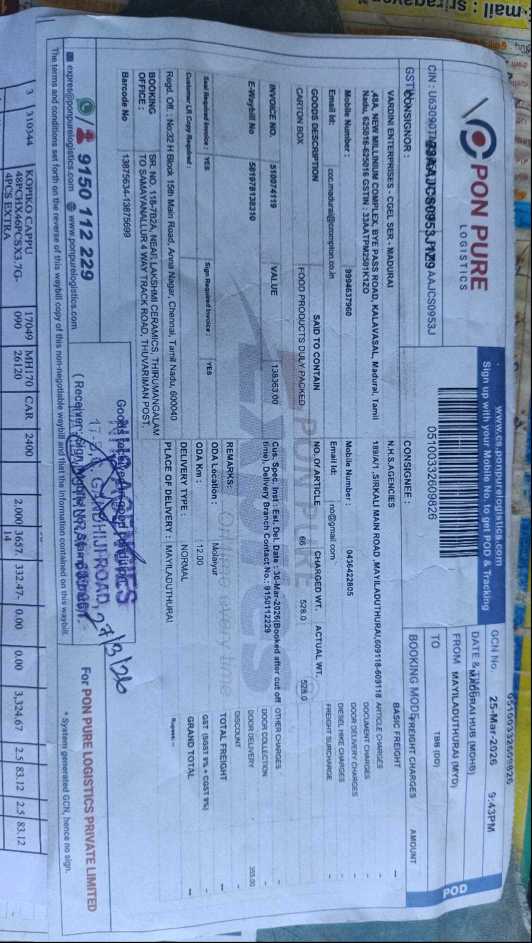 PON PURE
LOGISTICS
www.cs.ponpurelogistics.com
Sign up with your Mobile No. to get POD & Tracking
GCN No. 25-Mar-2026 9:43PM
DATE & TIME
FROM MADURAI HUB (MDHB)
TO MAYILADUTHURAI (MYD)
BOOKING MODE TBB (DD)
POD
051003322609826
CONSIGNOR :
VARDINI ENTERPRISES - CGEL SER - MADURAI
,48A, NEW MILLINIUM COMPLEX, BYE PASS ROAD, KALAVASAL, Madurai, Tamil
Nadu, 625016-625016 GSTIN : 33AATPM2501K1ZO
Mobile Number : 9994637960
Email Id: ccc.madurai@crompton.co.in
CONSIGNEE :
N.H.S.AGENCIES
189/A/1 ,SIRKALI MAIN ROAD ,MAYILADUTHURAI,609118-609118
Mobile Number : 0436422805
Email Id: no@gmail.com
GOODS DESCRIPTION SAID TO CONTAIN NO. Of ARTICLE CHARGED WT. ACTUAL WT.
CARTON BOX FOOD PRODUCTS DULY PACKED 66 528.0 528.0
INVOICE NO. 510074119 VALUE 138363.00
E-Waybill No 581978138310
Cus. Spec. Inst : Est. Del. Date : 30-Mar-2026(Booked after cut off
time), Delivery Branch Contact No.: 9150112229
REMARKS:
Seal Required Invoice : YES Sign Required Invoice : YES
Customer LR Copy Required :
ODA Location : Molaiyur
ODA Km : 12.00
DELIVERY TYPE : NORMAL
PLACE OF DELIVERY : MAYILADUTHURAI
Regd. Off. : No:32 H Block 15th Main Road, Anna Nagar, Chennai, Tamil Nadu, 600040
BOOKING OFFICE : SR. NO. 118-7B2A, NEAR LAKSHMI CERAMICS, THIRUMANGALAM
TO SAMAYANALLUR 4 WAY TRACK ROAD, THUVARIMAN POST,
Barcode No 13875634-13875699
FREIGHT CHARGES AMOUNT
BASIC FREIGHT
ARTICLE CHARGES
DOCUMENT CHARGES
DOOR DELIVERY CHARGES
DIESEL HIKE CHARGES
FREIGHT SURCHARGE
OTHER CHARGES
DOOR COLLECTION
DOOR DELIVERY 355.00
DISCOUNT
TOTAL FREIGHT
GST (SGST 9% + CGST 9%)
GRAND TOTAL
Rupees. --
27/3/26
9150 112 229
express@ponpurelogistics.com www.ponpurelogistics.com
For PON PURE LOGISTICS PRIVATE LIMITED
* System generated GCN, hence no sign.
The terms and conditions set forth on the reverse of this waybill copy of this non-negotiable waybill and that the information contained on this waybill.
3 310344 KOPIKO CAPPU 17049 MH170 CAR 2400 2.000 3657. 332.47- 0.00 0.00 3,324.67 2.5 83.12 2.5 83.12
48PCHX46PCSX3.7G- 090 26120 14
4PCS EXTRA